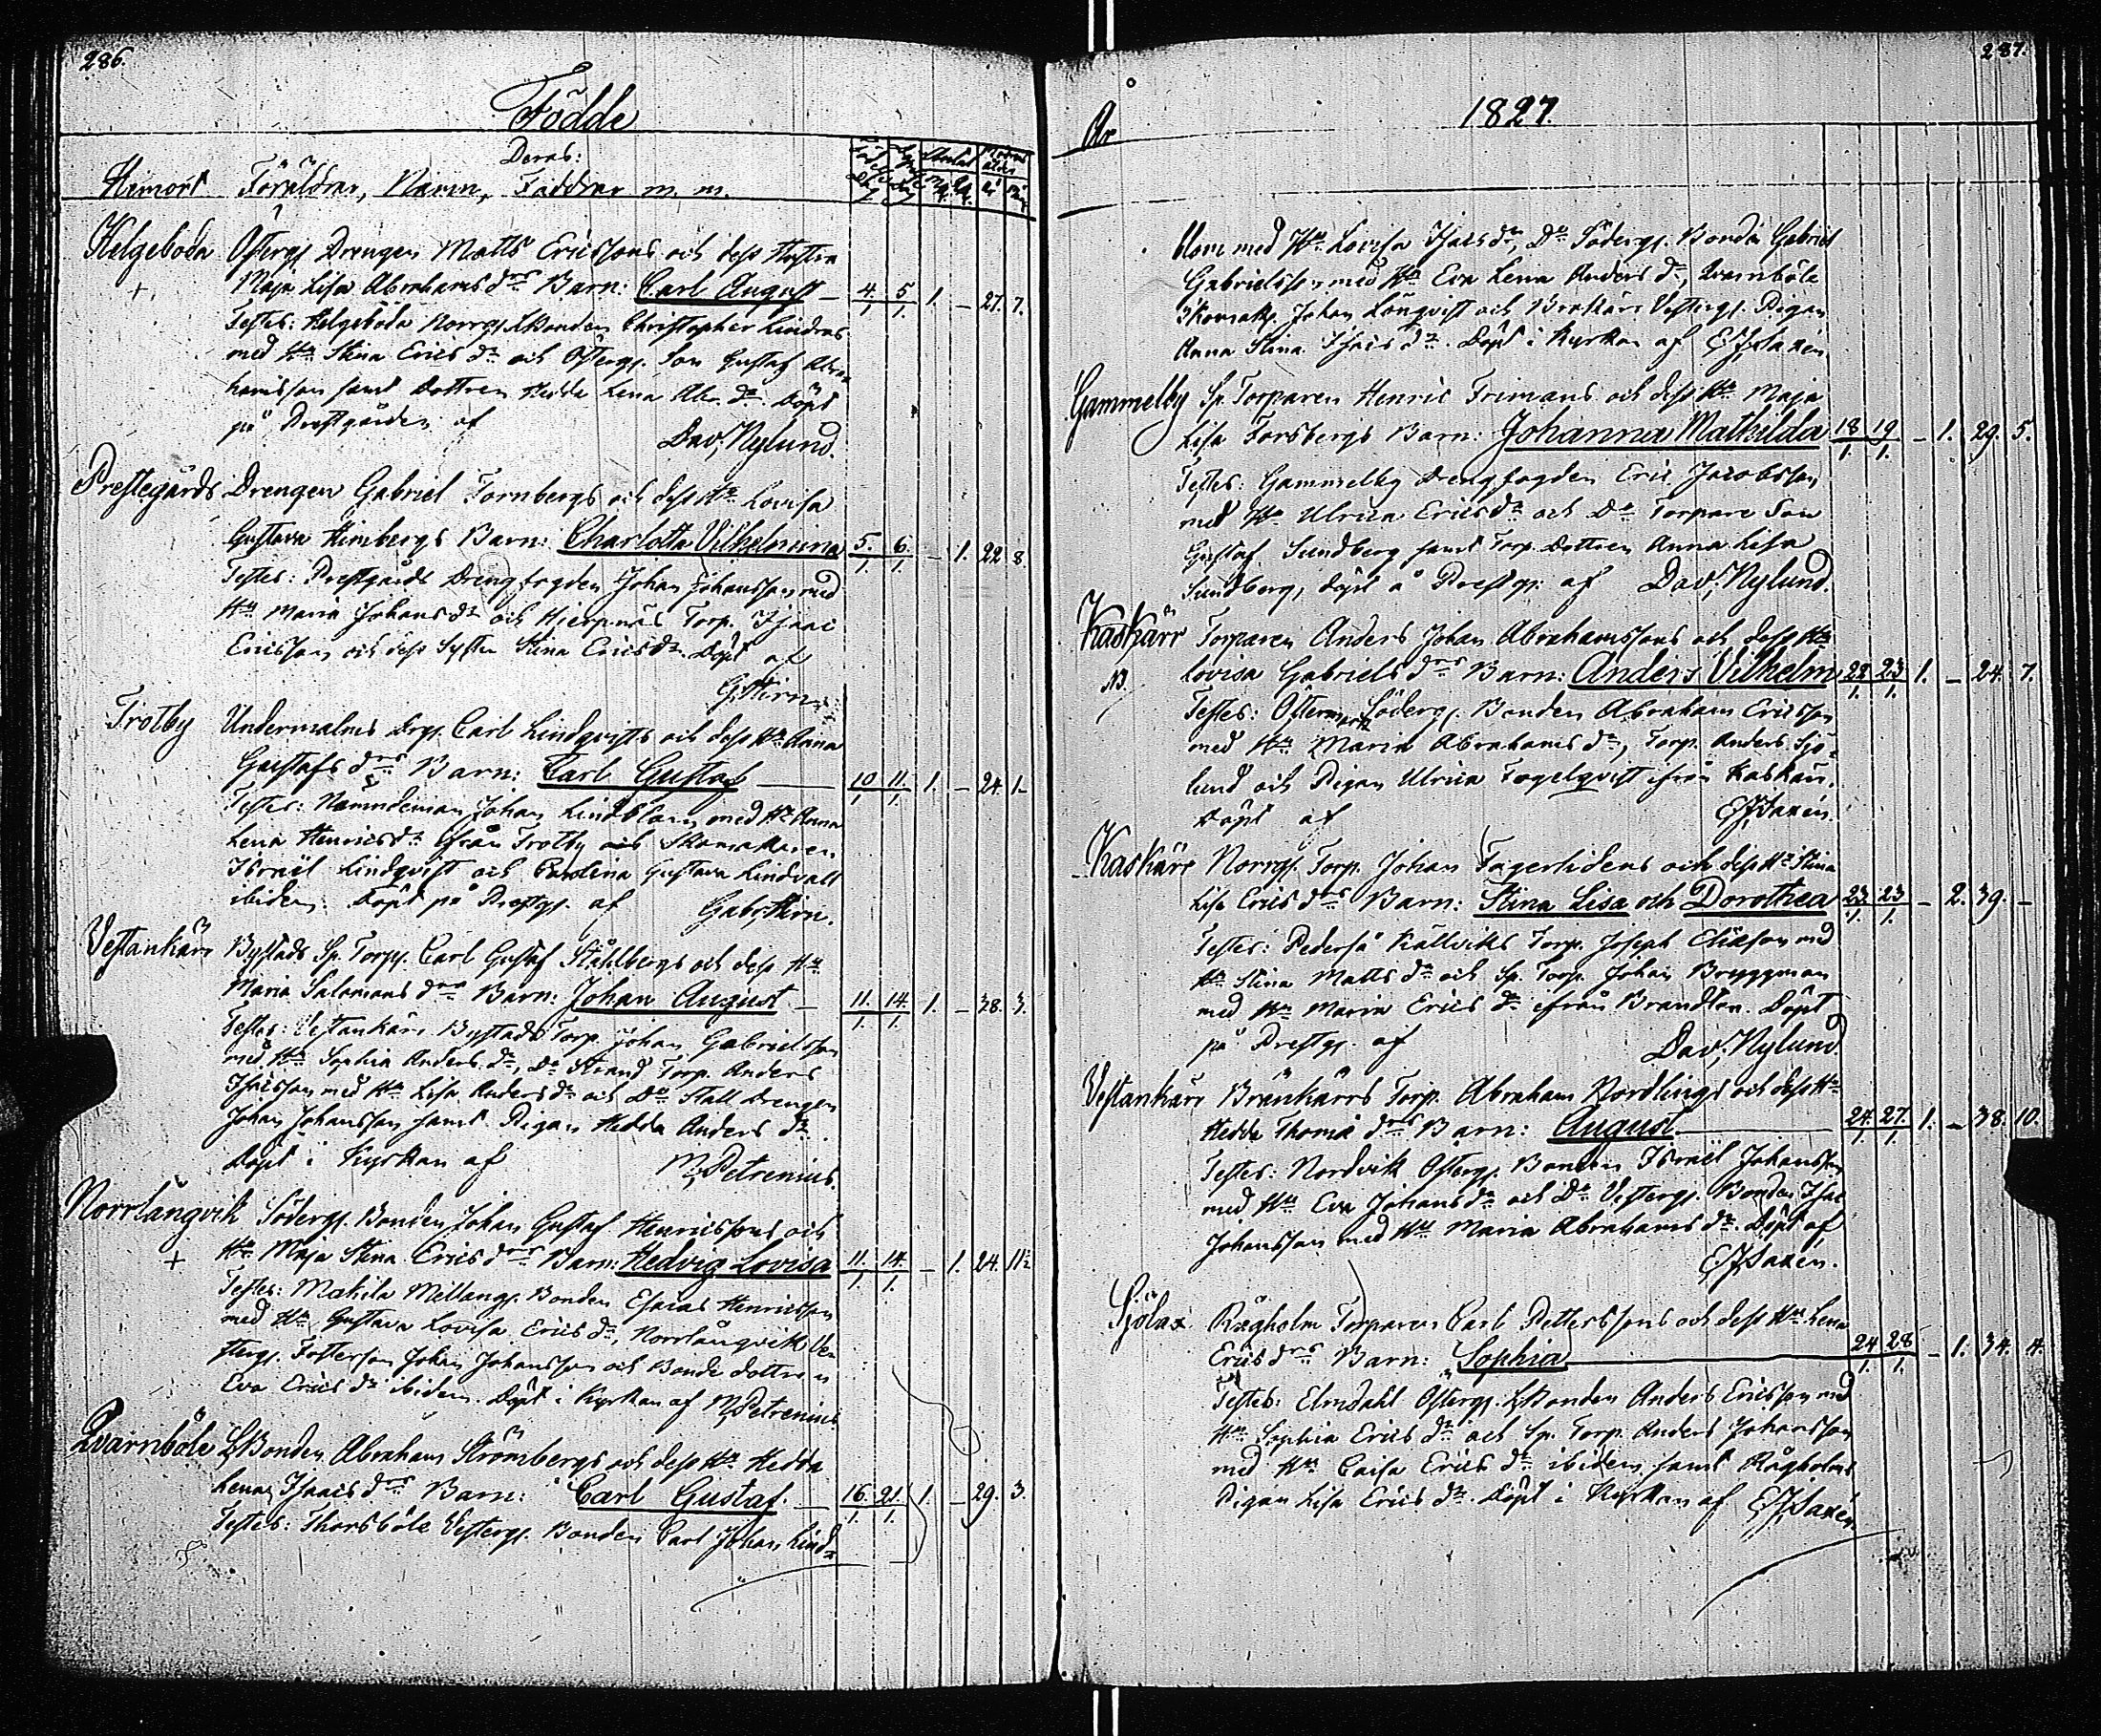 286.
Födde
Deras:
Hemort Föräldrar, Namn, Faddrar m. m.
Helgeboda Östergs Drengen Matts Ericssons och dess Hustru
Maja Lisa Abrahams drs Barn: Carl August — 4/1. 5/1. 1. — 27. 7.
Testes: Helgeboda Norrgs LBonden Christopher Lindroos
med Hu Stina Erics dr och Östergs. Son Gustaf Abra-
hamsson samt Dottren Hedda Lena Abr. dr. Döpt
på Prestgården af
Dav. Nylund.
Prestegårds Drengen Gabriel Tornbergs och dess Hu Lovisa
Gustava Himbergs Barn: Charlotta Vilhelmina 5./1. 6./1. — 1. 22 8.
Testes: Prestgårds Drengfogden Johan Johansson med
Hu Maria Johans dr och Torp. Isaac
Ericsson och dess Syster Stina Erics dr. Döpt af
G. Hirn.
Trotby Undermalms Carl Lindqvists och dess Hu Anna
Gustafs drs Barn: Carl Gustaf — 10/1. 11./1. 1. — 24. 1—
Testes: Nämndeman Johan Lindblom med Hu Anna
Lena Henrics dr ifrån Trotby och Skomakaren
Israël Lindqvist och Carolina Gustava Lindvall
ibidem. Döpt på Prestgs. af Gab. Hirn.
Vestankärr Bystads Sp. Torps. Carl Gustaf Ståhlbergs och dess Hu
Maria Salomons drs Barn: Johan August — 11./1. 14./1. 1. — 38. 3.
Testes: Vestankärr Bystads Torp. Johan Gabrielsson
med Hu Sophia Anders dr, Do Strand Torp. Anders
Isacsson med Hu Lisa Anders dr och Do Stall Drengen
Johan Johansson samt Pigan Hedda Anders dr.
Döpt i Kyrkan af M. Petrenius.
Norrlångvik Södergs. Bonden Johan Gustaf Henricssons och
+ Hu Maja Stina Erics drs Barn: Hedvig Lovisa 11./1. 14./1. — 1. 24. 11½
Testes: Makila Mellangs. Bonden Esaias Henricsson
med Hu Gustava Lovisa Erics dr, Norrlångvik Ve-
stergs. Fosterson Johan Johansson och Bonde dottren
Eva Erics dr ibidem. Döpt i Kyrkan af M. Petrenius
Qvarnböle LBonden Abraham Strömbergs och dess Hu Hedda
Lena Isaacs drs Barn: Carl Gustaf. — 16./1. 21./1. 1. — 29. 3.
Testes: Thorsböle Vestergs. Bonden Carl Johan Lind-
287.
År 1827
blom med Hu Lovisa Isacs dr, Do Södergs. Bonden Gabriel
Gabrielsson med Hu Eva Lena Anders dr, Qvarnböle
Skomak. Johan Lönqvist och Vestergs. Pigan
Anna Stina Isacs dr. Döpt i Kyrkan af E.J. Saxén
Gammelby Sp. Torparen Henric Frimans och dess Hu Maja
Lisa Forsbergs Barn: Johanna Mathilda 18/1. 19/1. — 1. 29. 5.
Testes: Gammelby Drengfogden Eric Jacobsson
med Hu Ulrica Erics dr och Do Torpare Son
Gustaf Sundberg samt Torp. Dottren Anna Lisa
Sundberg, döpt å Prestgs. af Dav. Nylund.
Kaskärr Torparen Anders Johan Abrahamssons och dess Hu
NB. Lovisa Gabriels drs Barn: Anders Vilhelm 22/1. 23/1. 1. — 24. 7.
Testes: Östermark Södergs. Bonden Abraham Ericsson
med Hu Maria Abrahams dr, Torp. Anders Sjö-
lund och Pigan Ulrica Fogelqvist ifrån Kaskärr.
Döpt af E.J. Saxén.
Kaskärr Norrgs. Torp. Johan Fagerlidens och dess Hu Stina
Lisa Erics drs Barn: Stina Lisa och Dorothea 23/1. 23/1. — 2. 39. —
Testes: Pedersö Källviks Torp. Joseph Eliæson med
Hu Stina Matts dr och Sp. Torp. Johan Bryggman
med Hu Maria Erics dr ifrån Döpt
på Prestgs. af Dav. Nylund
Vestankärr Brännkärrs Torp. Abraham Nordlings och dess Hu
Hedda Thoma drs Barn: August — 24./1. 27./1. 1. — 38. 10.
Testes: Nordvik Östergs. Bonden Israël Johansson
med Hu Eva Johans dr och Do Vestergs. Bonden Isac
Johansson med Hu Maria Abrahams dr. Döpt af
E.J. Saxén.
Sjölax Rågholm Torparen Carl Petterssons och dess Hu Lena
Erics drs Barn: Sophia — 24/1. 28/1. — 1. 34. 4.
Testes: Elmdahl Östergs. LBonden Anders Ericsson med
Hu Sophia Erics dr och Sp. Torp. Anders Johansson
med Hu Caisa Erics dr ibidem samt Rågholms
Pigan Lisa Erics dr. Döpt i Kyrkan af E.J. Saxén